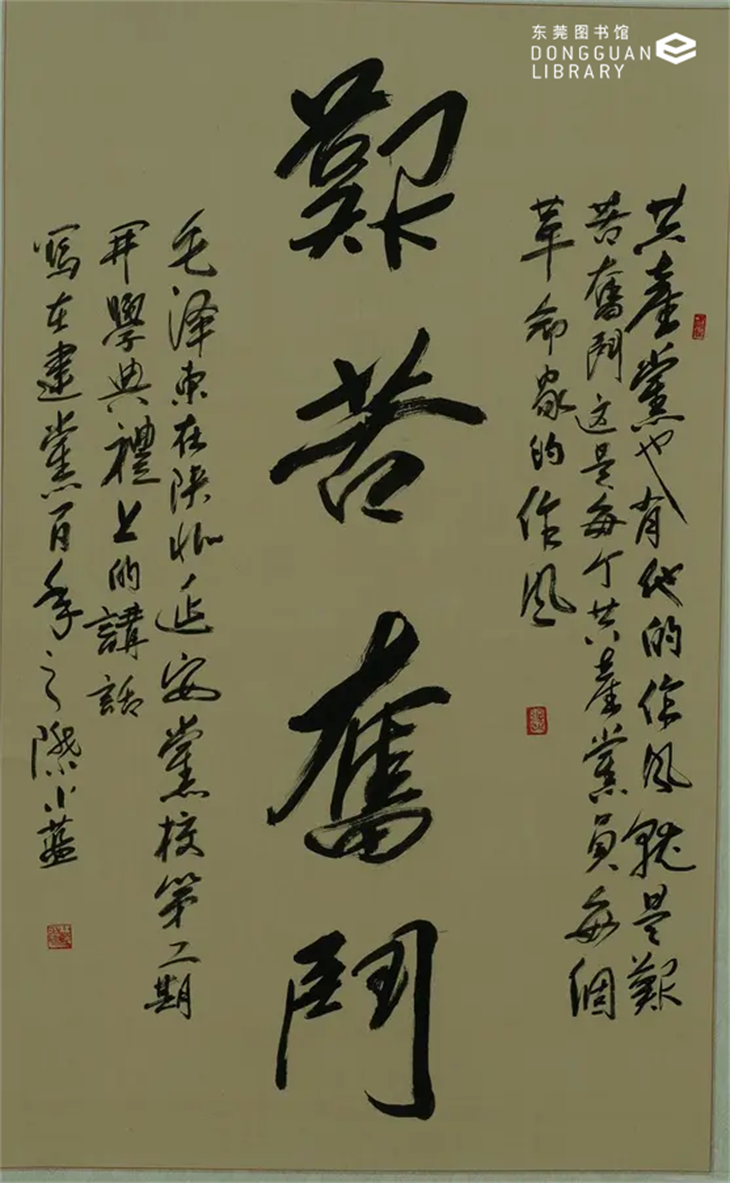 东莞图书馆
DONGGUAN
LIBRARY
共產黨也有他的作风就是艱
苦奮鬥这是每个共產黨員每個
革命家的作风
艱苦奮鬥
毛泽东在陕北延安黨校第二期
开學典禮上的講話
寫在建黨百年之際小藍